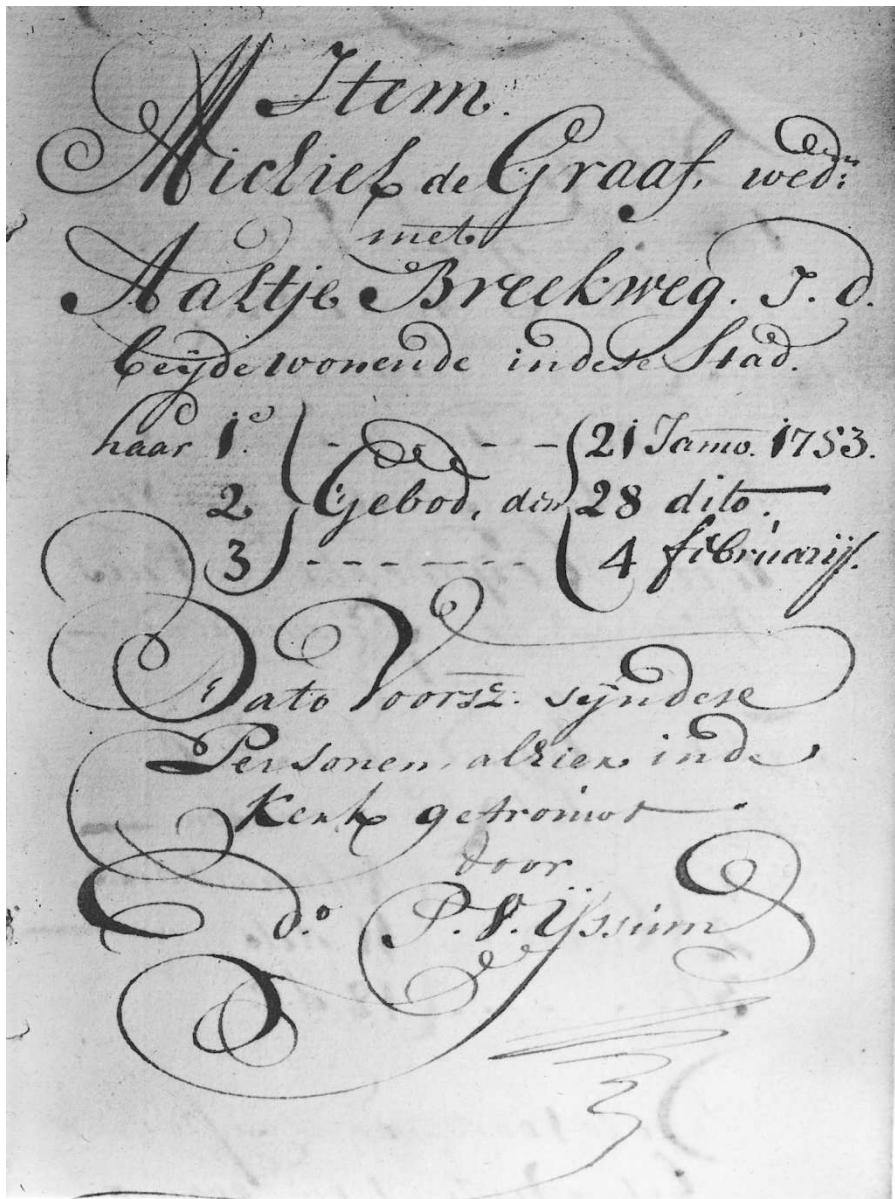 Item.
Michiel de Graaf, wed:r
met
Aaltje Breekweg. J. d.
beÿde wonende in dese Stad.
haar 1.e - - - - - 21 Janro. 1753.
2 Gebod, den 28 dito.
3 - - - - - - - 4 februarij.
Dato Voorsz. sijn dese
Personen alhier in de
Kerk getrouwt
door
d.o P. V. IJssum